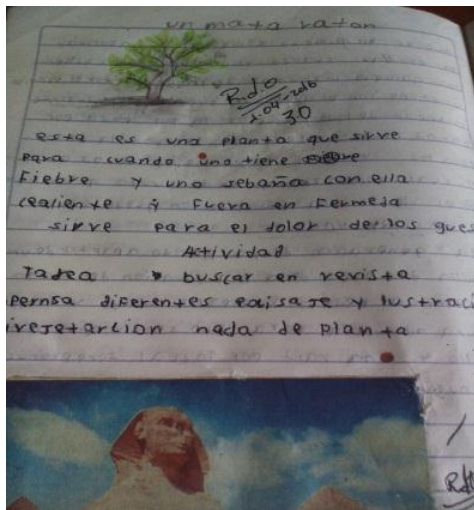 un mata raton
R.do
1-04-2016
30
esta es una planta que sirve
para cuando una tiene
Fiebre y uno sebaña con ella
cealiente y Fuera en Fermeda
sirve para el dolor de los gues
Actividad
Tadea buscar en revista
pernsa diferentes paisaje y lustraci
nada de planta